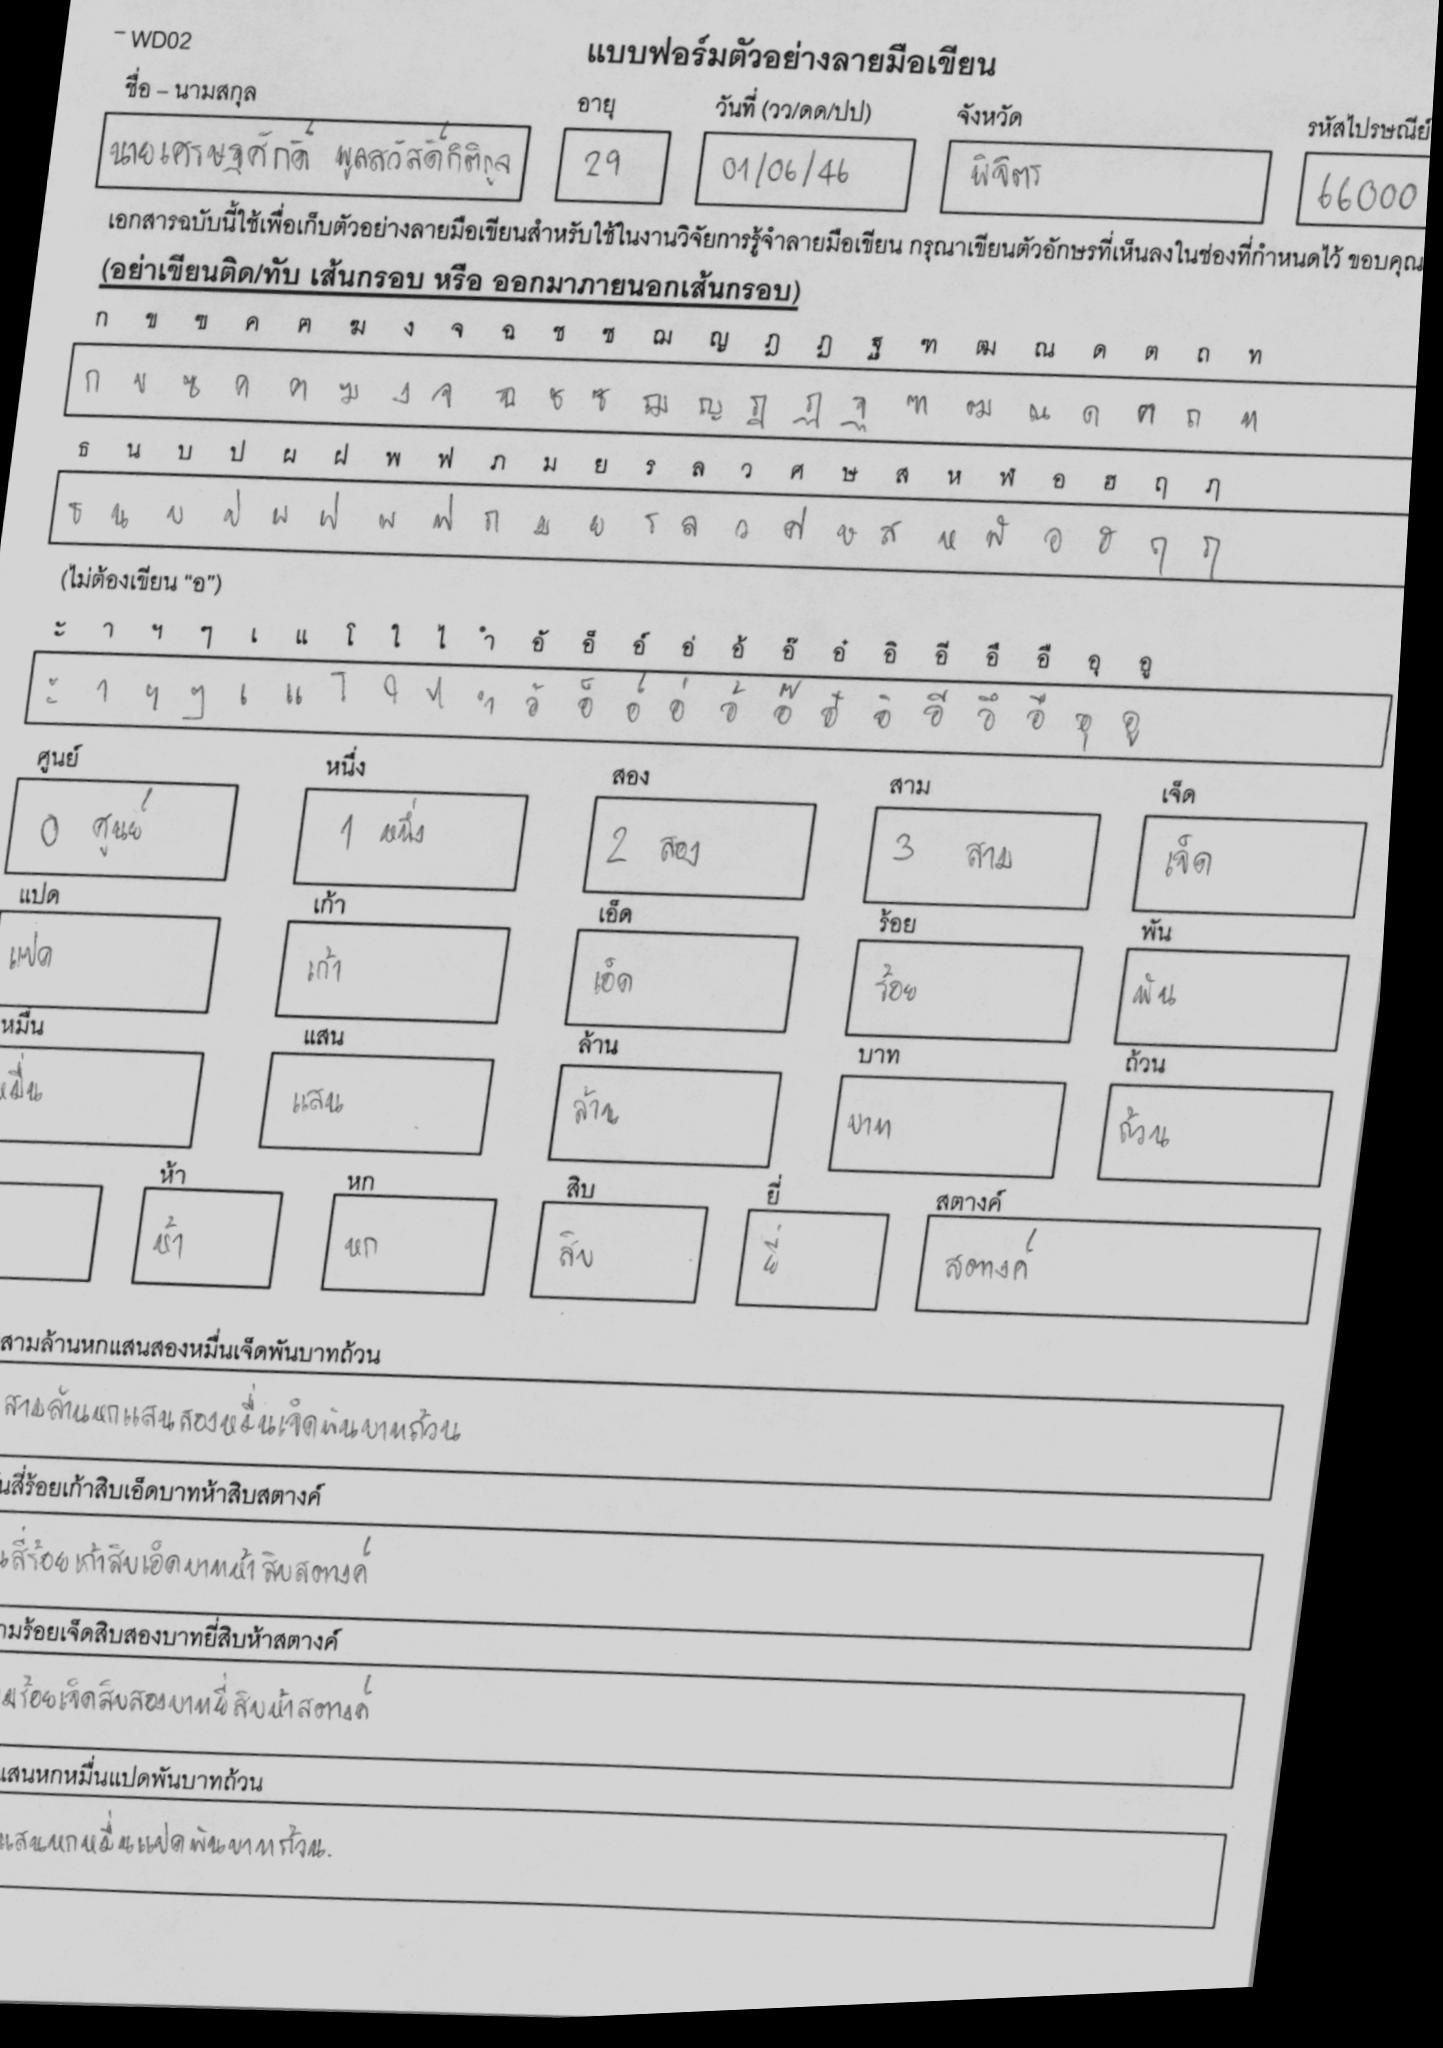 WD02
แบบฟอร์มตัวอย่างลายมือเขียน
ชื่อ – นามสกุล อายุ วันที่ (วว/ดด/ปป) จังหวัด รหัสไปรษณีย์
นายเศรษฐศักดิ์ พูลสวัสดิ์กิติกูล 29 01/06/46 พิจิตร 66000
เอกสารฉบับนี้ใช้เพื่อเก็บตัวอย่างลายมือเขียนสำหรับใช้ในงานวิจัยการรู้จำลายมือเขียน กรุณาเขียนตัวอักษรที่เห็นลงในช่องที่กำหนดไว้ ขอบคุณ
(อย่าเขียนติด/ทับ เส้นกรอบ หรือ ออกมาภายนอกเส้นกรอบ)
ก ข ฃ ค ฅ ฆ ง จ ฉ ช ซ ฌ ญ ฎ ฏ ฐ ฑ ฒ ณ ด ต ถ ท
ก ข ฃ ค ฅ ฆ ง จ ฉ ช ซ ฌ ญ ฎ ฏ ฐ ฑ ฒ ณ ด ต ถ ท
ธ น บ ป ผ ฝ พ ฟ ภ ม ย ร ล ว ศ ษ ส ห ฬ อ ฮ ฤ ฦ
ธ น บ ป ผ ฝ พ ฟ ภ ม ย ร ล ว ศ ษ ส ห ฬ อ ฮ ฤ ฦ
(ไม่ต้องเขียน “อ”)
ะ า ฯ ๆ เ แ โ ใ ไ ำ อั อ็ อ์ อ่ อ้ อ๊ อ๋ อิ อี อึ อื อุ อู
ะ า ฯ ๆ เ แ โ ใ ไ ำ อั อ็ อ์ อ่ อ้ อ๊ อ๋ อิ อี อึ อื อุ อู
ศูนย์ หนึ่ง สอง สาม เจ็ด
0 ศูนย์ 1 หนึ่ง 2 สอง 3 สาม เจ็ด
แปด เก้า เอ็ด ร้อย พัน
แปด เก้า เอ็ด ร้อย พัน
หมื่น แสน ล้าน บาท ถ้วน
หมื่น แสน ล้าน บาท ถ้วน
ห้า หก สิบ ยี่ สตางค์
ห้า หก สิบ ยี่ สตางค์
สามล้านหกแสนสองหมื่นเจ็ดพันบาทถ้วน
สามล้านหกแสนสองหมื่นเจ็ดพันบาทถ้วน
นสี่ร้อยเก้าสิบเอ็ดบาทห้าสิบสตางค์
นสี่ร้อยเก้าสิบเอ็ดบาทห้าสิบสตางค์
ามร้อยเจ็ดสิบสองบาทยี่สิบห้าสตางค์
มร้อยเจ็ดสิบสองบาทยี่สิบห้าสตางค์
แสนหกหมื่นแปดพันบาทถ้วน
แสนหกหมื่นแปดพันบาทถ้วน.